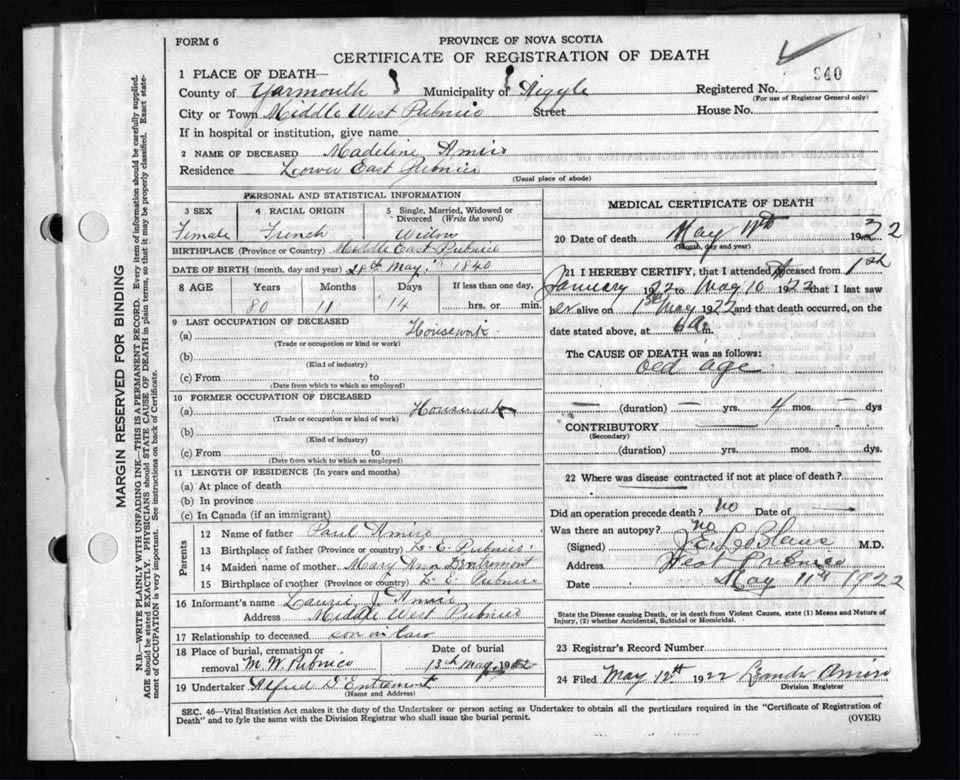 FORM 6
PROVINCE OF NOVA SCOTIA
CERTIFICATE OF REGISTRATION OF DEATH
940
1 PLACE OF DEATH—
County of Yarmouth Municipality of Argyle Registered No.
(For use of Registrar General only)
City or Town Middle West Pubnico Street House No.
If in hospital or institution, give name
2 NAME OF DECEASED Madeline Amiro
Residence Lower East Pubnico
(Usual place of abode)
PERSONAL AND STATISTICAL INFORMATION
3 SEX 4 RACIAL ORIGIN 5 Single, Married, Widowed or Divorced (Write the word)
Female French Widow
BIRTHPLACE (Province or Country) Middle East Pubnico
DATE OF BIRTH (month, day and year) 28th May 1840
8 AGE Years Months Days If less than one day.
80 11 14 hrs. or min.
9 LAST OCCUPATION OF DECEASED
(a) Housework
(Trade or occupation or kind or work)
(b)
(Kind of industry)
(c) From to
(Date from which to which so employed)
10 FORMER OCCUPATION OF DECEASED
(a) Housework
(Trade or occupation or kind of work)
(b)
(Kind of industry)
(c) From to
(Date from which to which so employed)
11 LENGTH OF RESIDENCE (In years and months)
(a) At place of death
(b) In province
(c) In Canada (if an immigrant)
Parents
12 Name of father Paul Amiro
13 Birthplace of father (Province or country) L. E. Pubnico
14 Maiden name of mother Mary Ann Dentremont
15 Birthplace of mother (Province or country) L. E. Pubnico
16 Informant's name Laurie J. Amiro
Address Middle West Pubnico
17 Relationship to deceased son in law
18 Place of burial, cremation or Date of burial
removal M. W. Pubnico 13th May 1922
19 Undertaker Alfred D'Entremont
(Name and Address)
MEDICAL CERTIFICATE OF DEATH
20 Date of death May 19 2
(Month, day and year)
21 I HEREBY CERTIFY, that I attended deceased from 1st
January 1922 to May 10 1922 that I last saw
her alive on 1st May 1922 and that death occurred, on the
date stated above, at 6 a m.
The CAUSE OF DEATH was as follows:
old age
— (duration) — yrs. 4 mos. — dys
CONTRIBUTORY
(Secondary)
(duration) yrs. mos. dys.
22 Where was disease contracted if not at place of death?
Did an operation precede death? no Date of
Was there an autopsy? no
(Signed) J. E. LeBlanc M.D.
Address West Pubnico
Date May 11th 1922
State the Disease causing Death, or in death from Violent Causes, state (1) Means and Nature of
Injury, (2) whether Accidental, Suicidal or Homicidal.
23 Registrar's Record Number
24 Filed May 12th 1922 Amiro
Division Registrar
SEC. 46—Vital Statistics Act makes it the duty of the Undertaker or person acting as Undertaker to obtain all the particulars required in the "Certificate of Registration of
Death" and to fyle the same with the Division Registrar who shall issue the burial permit.
(OVER)
MARGIN RESERVED FOR BINDING
N.B.—WRITE PLAINLY WITH UNFADING INK—THIS IS A PERMANENT RECORD. Every item of information should be carefully supplied.
AGE should be stated EXACTLY. PHYSICIANS should STATE CAUSE OF DEATH in plain terms, so that it may be properly classified. Exact state-
ment of OCCUPATION is very important. See instructions on back of Certificate.